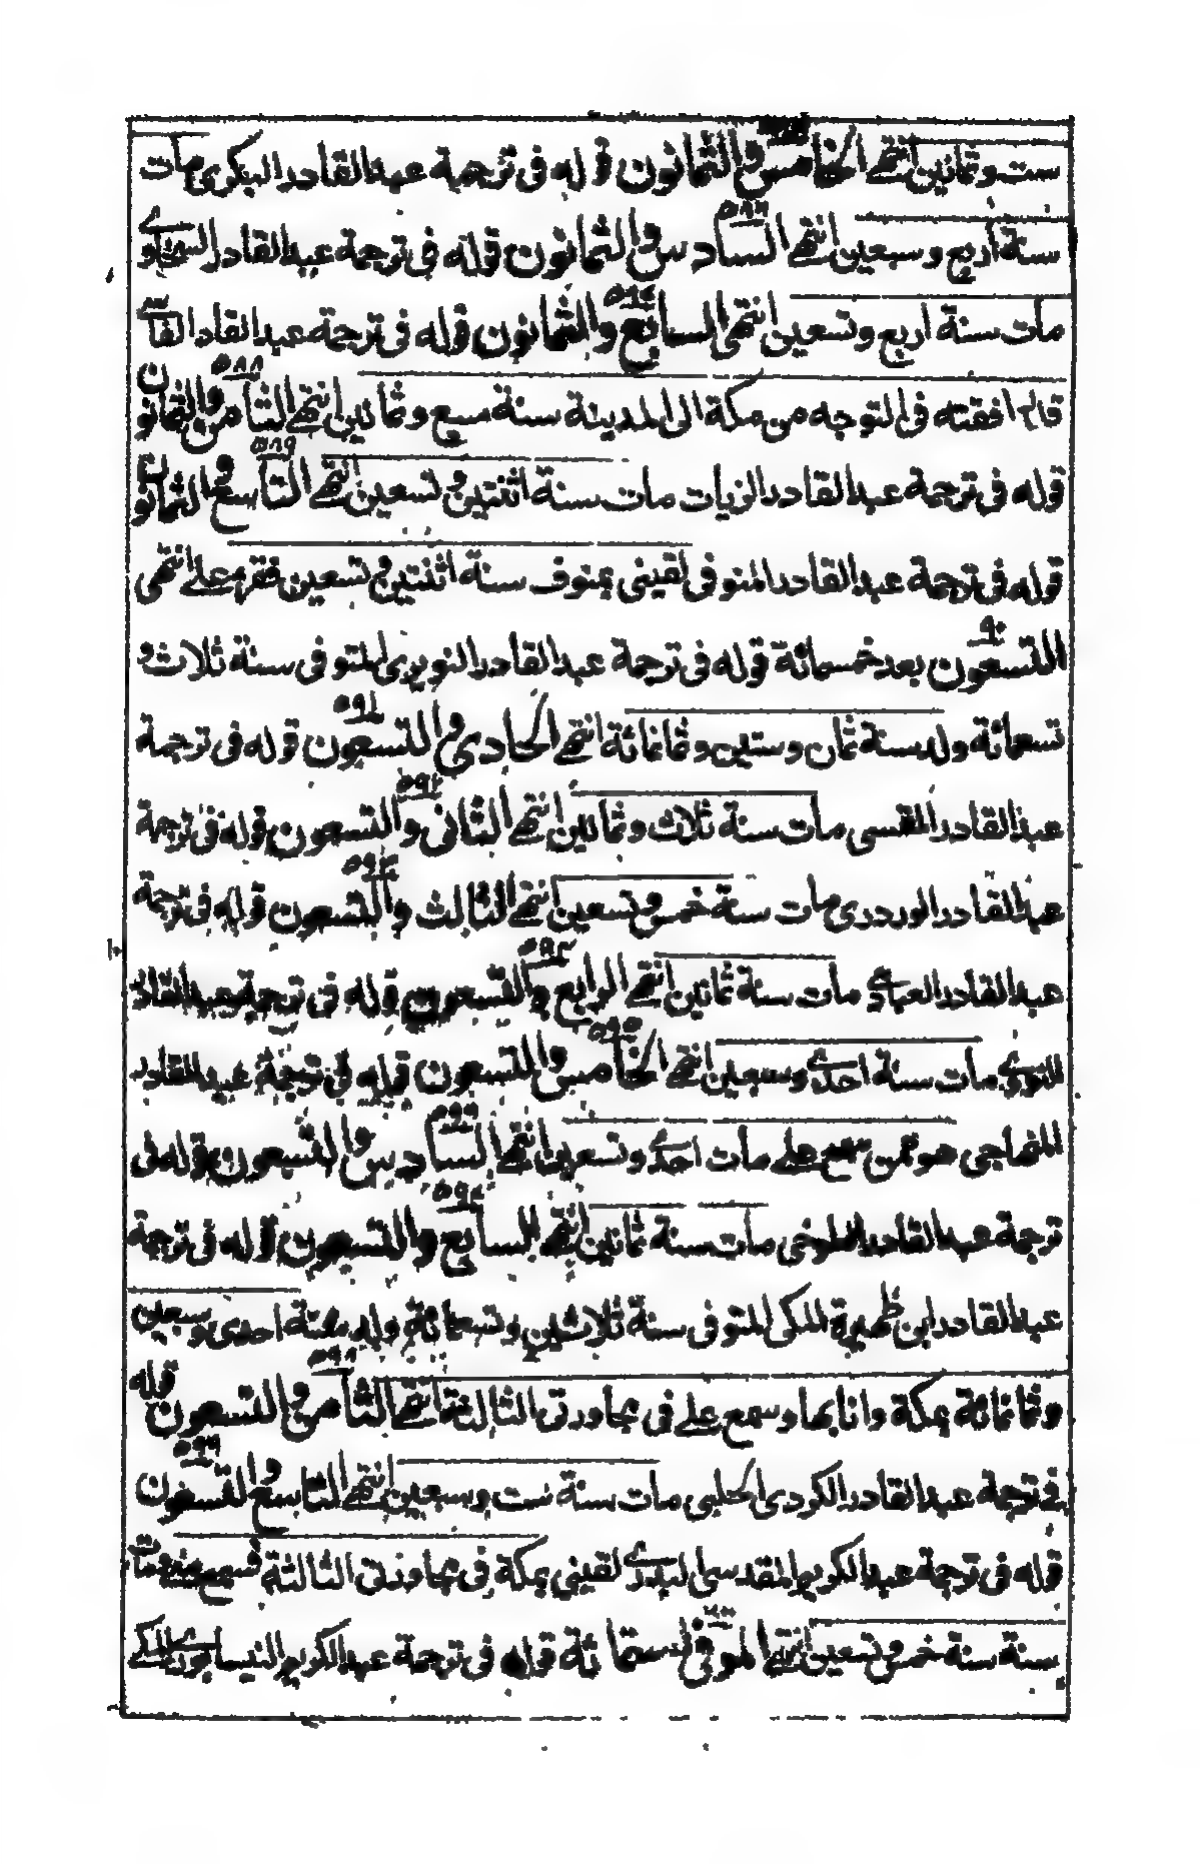 ست وثمانين انتهى الخامس والثمانون قوله فى ترجمة عبد القادر البكرى مات
سنة اربع وسبعين انتهى السادس والثمانون قوله فى ترجمة عبد القادر
مات سنة اربع وتسعين انتهى السابع والثمانون قوله فى ترجمة عبد القادر
قال افقته فى التوجه من مكة الى المدينة سنة سبع وثمانين انتهى الثامن والثمانون
قوله فى ترجمة عبد القادر الزيات مات سنة اثنتين وتسعين انتهى التاسع والثمانون
قوله فى ترجمة عبد القادر المنوفى لقينى بمنوف سنة اثنتين وتسعين فقرء على انتهى
التسعون بعد خمسمائة قوله فى ترجمة عبد القادر النويرى المتوفى سنة ثلاث و
تسعمائة ولد سنة ثمان وستين وثمانمائة انتهى الحادى والتسعون قوله فى ترجمة
عبد القادر المقسى مات سنة ثلاث وثمانين انتهى الثانى والتسعون قوله فى ترجمة
عبد القادر الوردرى مات سنة خمس وتسعين انتهى الثالث والتسعون قوله فى ترجمة
عبد القادر العبادى مات سنة ثمانين انتهى الرابع والتسعون قوله فى ترجمة عبد القادر
مات سنة احدى وسبعين انتهى الخامس والتسعون قوله فى ترجمة عبد القادر
المنهاجى هو ممن سمع على مات احدى وتسعين انتهى السادس والتسعون قوله فى
ترجمة عبد القادر مات سنة ثمانين انتهى السابع والتسعون قوله فى ترجمة
عبد القادر ابن ظهيرة المكى المتوفى سنة ثلاثين وتسعمائة ولد سنة احدى وسبعين
وثمانمائة بمكة وانا بها وسمع على فى مجاورتى الثالثة انتهى الثامن والتسعون قوله
فى ترجمة عبد القادر الكردى الحلبى مات سنة ست وسبعين انتهى التاسع والتسعون
قوله فى ترجمة عبد الكريم المقدسى لقينى بمكة فى مجاورتى الثالثة
سنة سنة خمس وتسعين انتهى الموفى ستمائة قوله فى ترجمة عبد الكريم